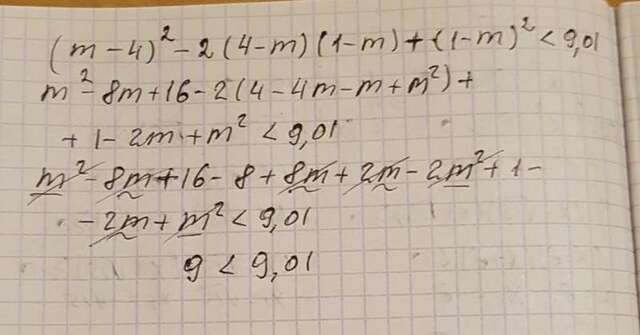 (m-4)² - 2(4-m)(1-m) + (1-m)² < 9,01
m² - 8m + 16 - 2(4 - 4m - m + m²) +
+ 1 - 2m + m² < 9,01
m² - 8m + 16 - 8 + 8m + 2m - 2m² + 1 -
- 2m + m² < 9,01
9 < 9,01